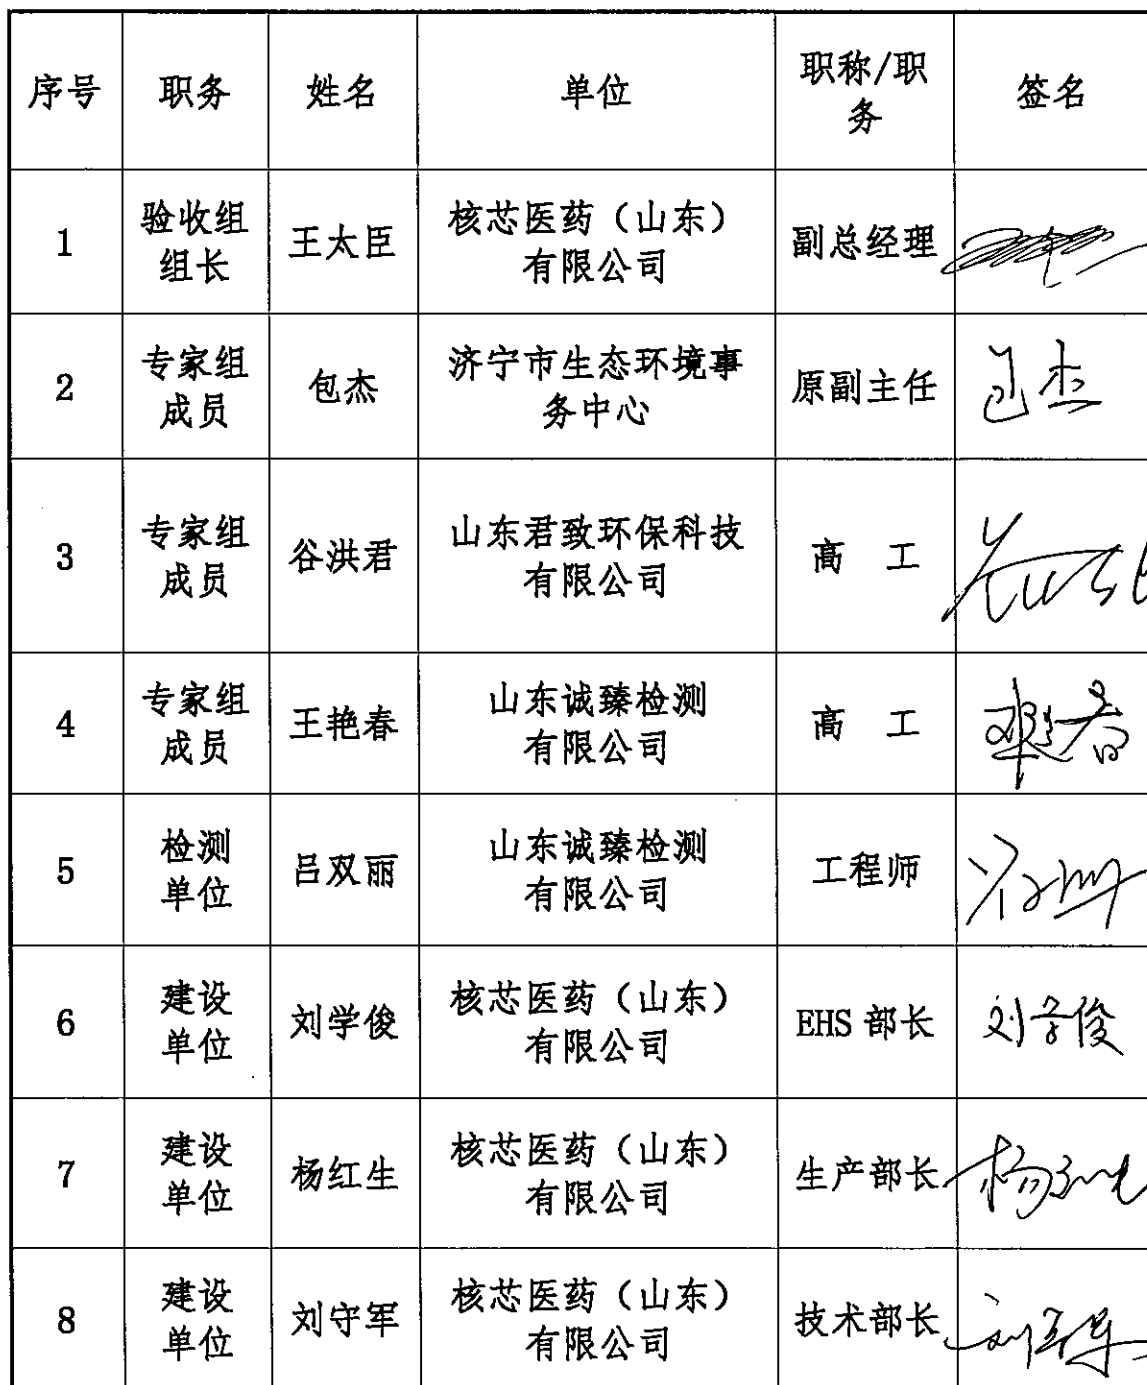 序号 职务 姓名 单位 职称/职务 签名
1 验收组组长 王太臣 核芯医药（山东）有限公司 副总经理
2 专家组成员 包杰 济宁市生态环境事务中心 原副主任 包杰
3 专家组成员 谷洪君 山东君致环保科技有限公司 高 工
4 专家组成员 王艳春 山东诚臻检测有限公司 高 工
5 检测单位 吕双丽 山东诚臻检测有限公司 工程师
6 建设单位 刘学俊 核芯医药（山东）有限公司 EHS 部长 刘学俊
7 建设单位 杨红生 核芯医药（山东）有限公司 生产部长 杨红生
8 建设单位 刘守军 核芯医药（山东）有限公司 技术部长